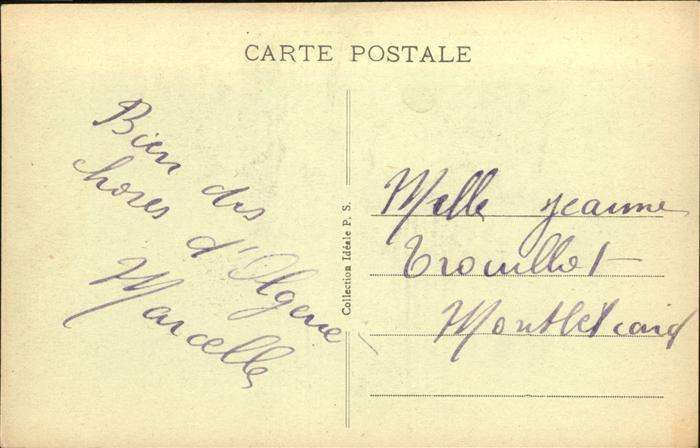 CARTE POSTALE
Bien des
choses d'Algerie
Marcelle
Collection Idéale P. S.
Melle Jeanne
Trouillot
Montbéliard